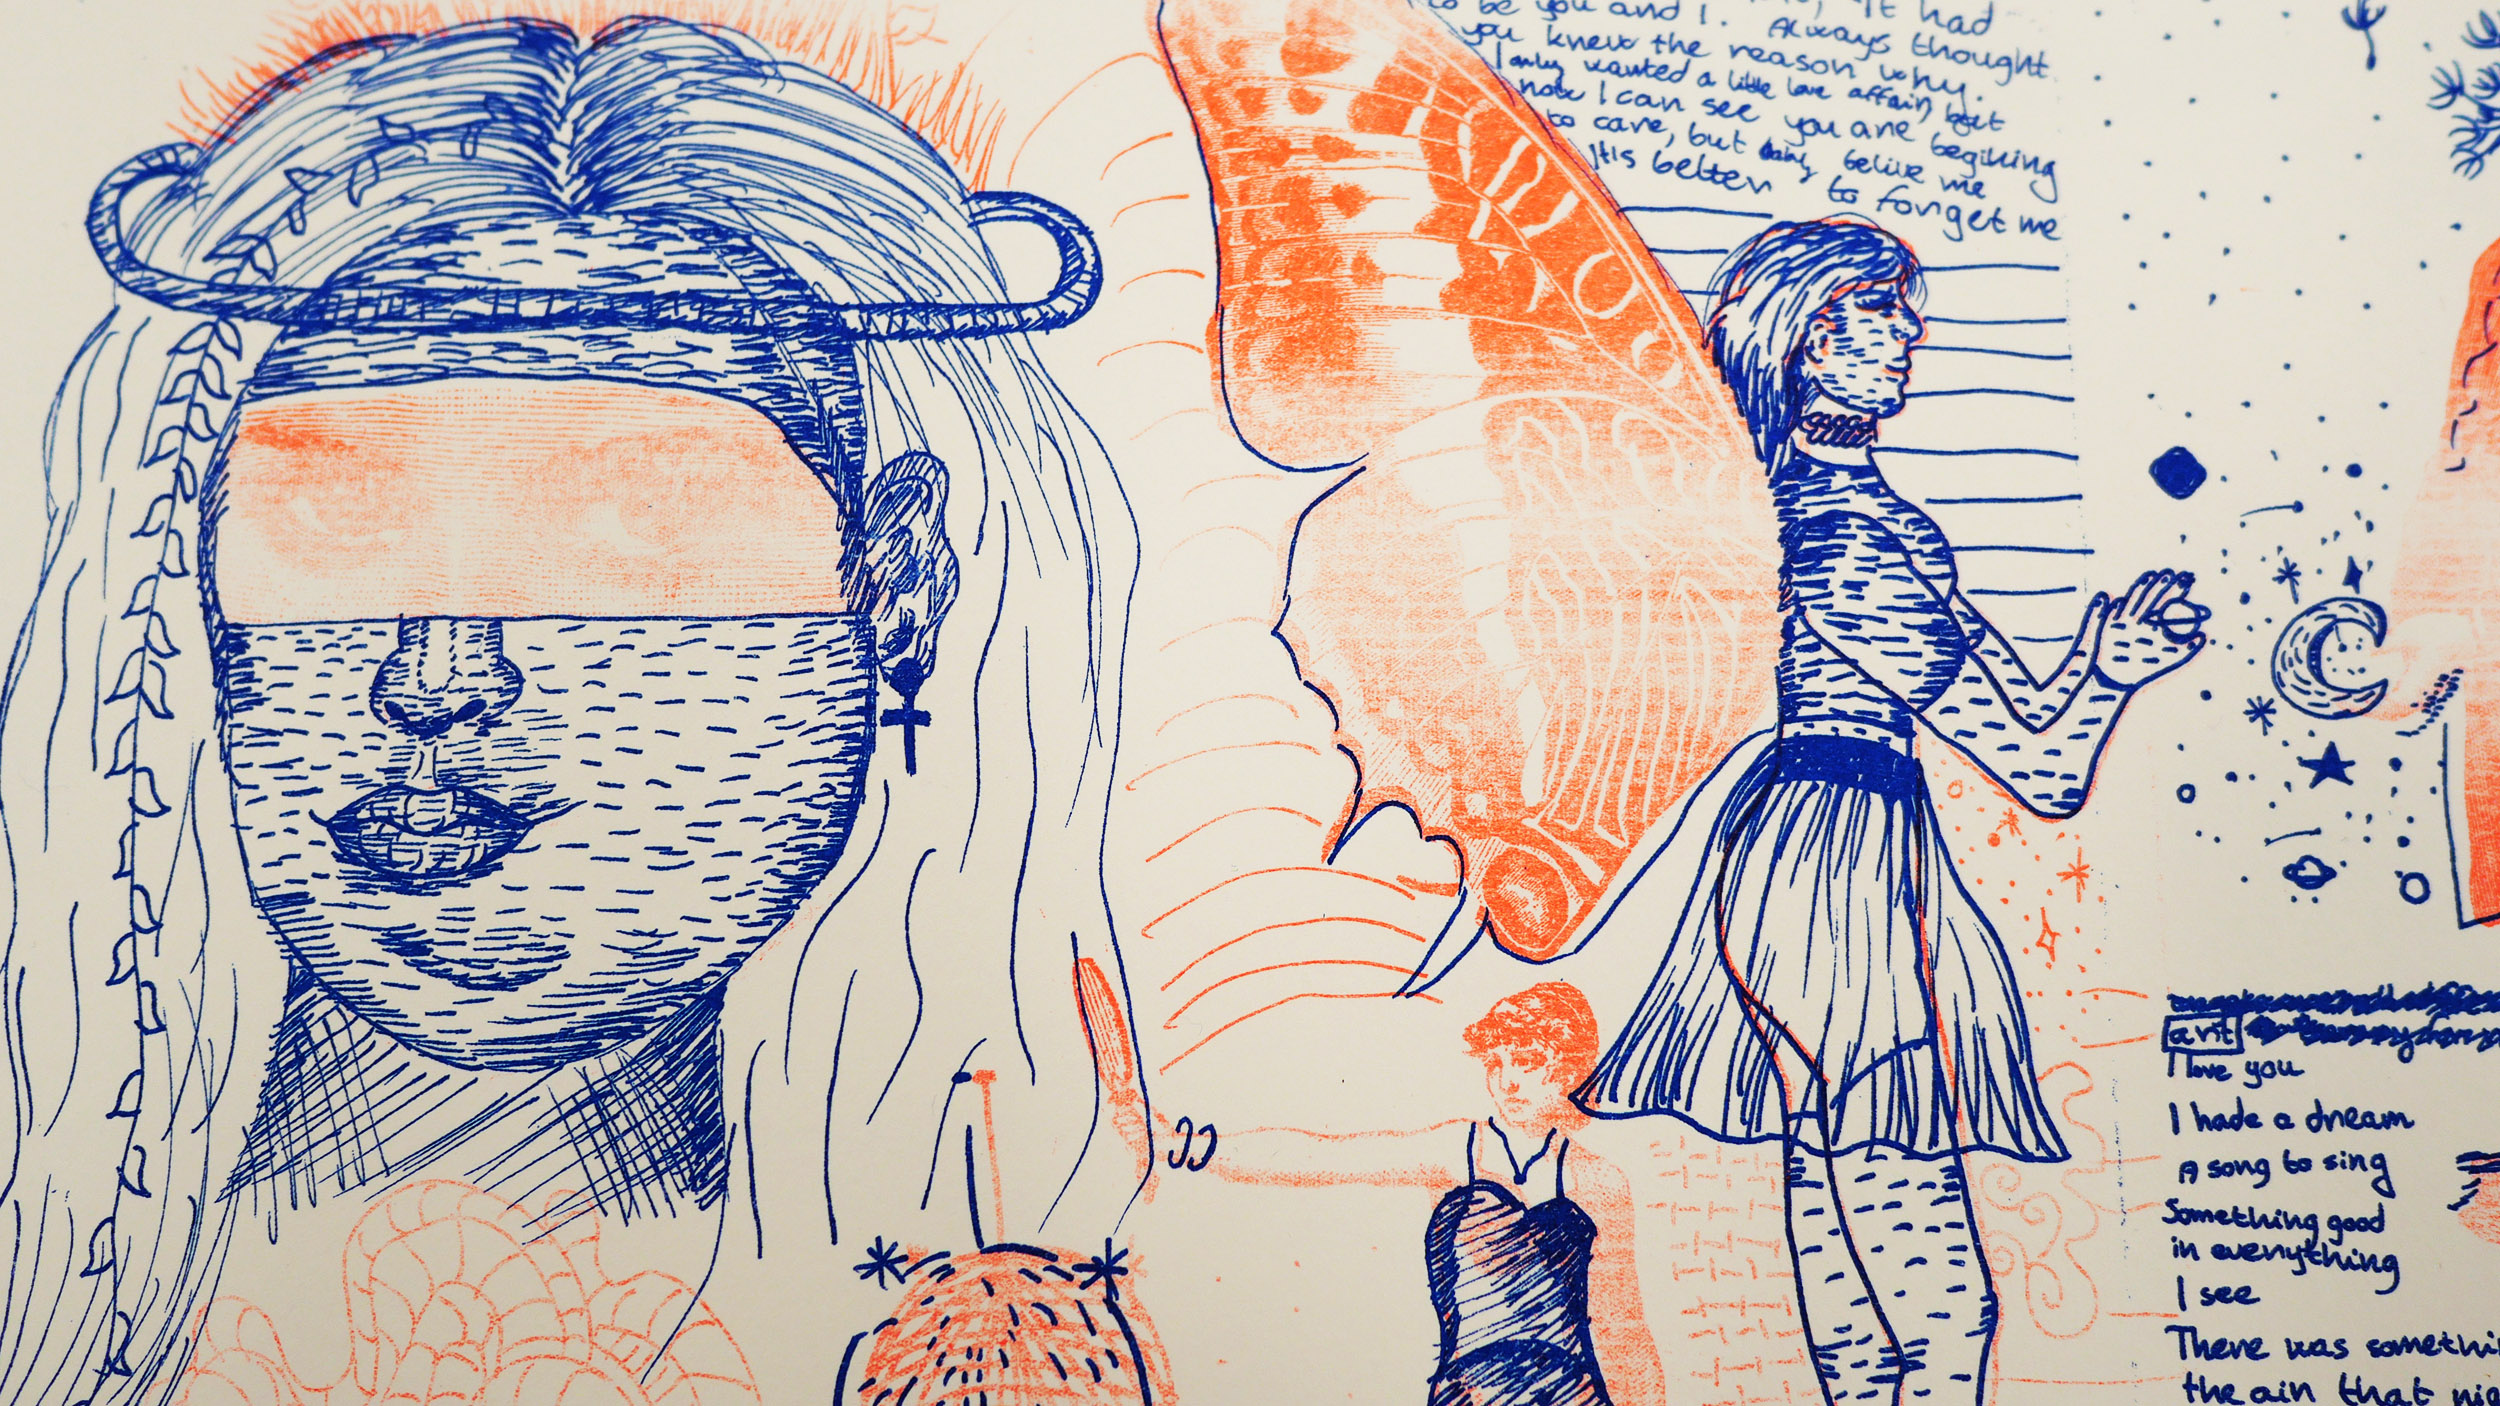 to be you and I. it had
you knew the reason why. Always thought
I only wanted a little love affair, but
now I can see you are begining
to care, but baby belive me
It is better to forget me
art
I love you
I hade a dream
A song to sing
Something good
in everything
I see
There was somethi
the ain that nig